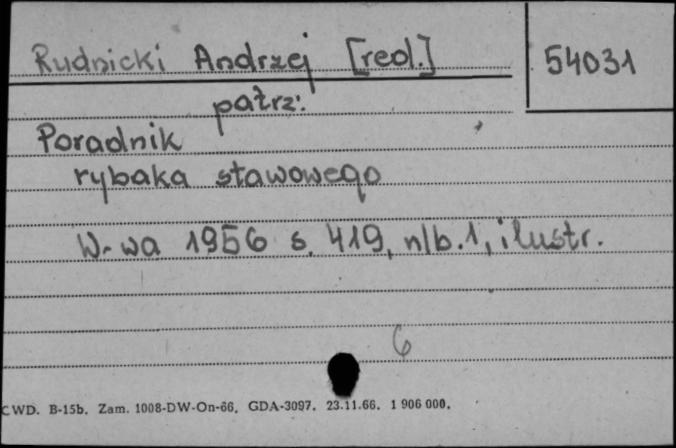 Rudnicki Andrzej [red.]
54031
patrz:
Poradnik
rybaka stawowego
W-wa 1956 s. 419, nlb. 1, ilustr.
6
CWD. B-15b. Zam. 1008-DW-On-66. GDA-3097. 23.11.66. 1 906 000.